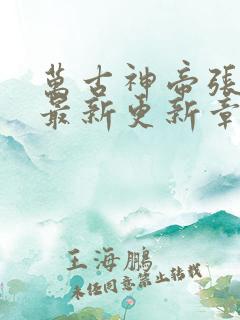 萬古神帝張
最新更新章
王海鵬
未经同意禁止转载